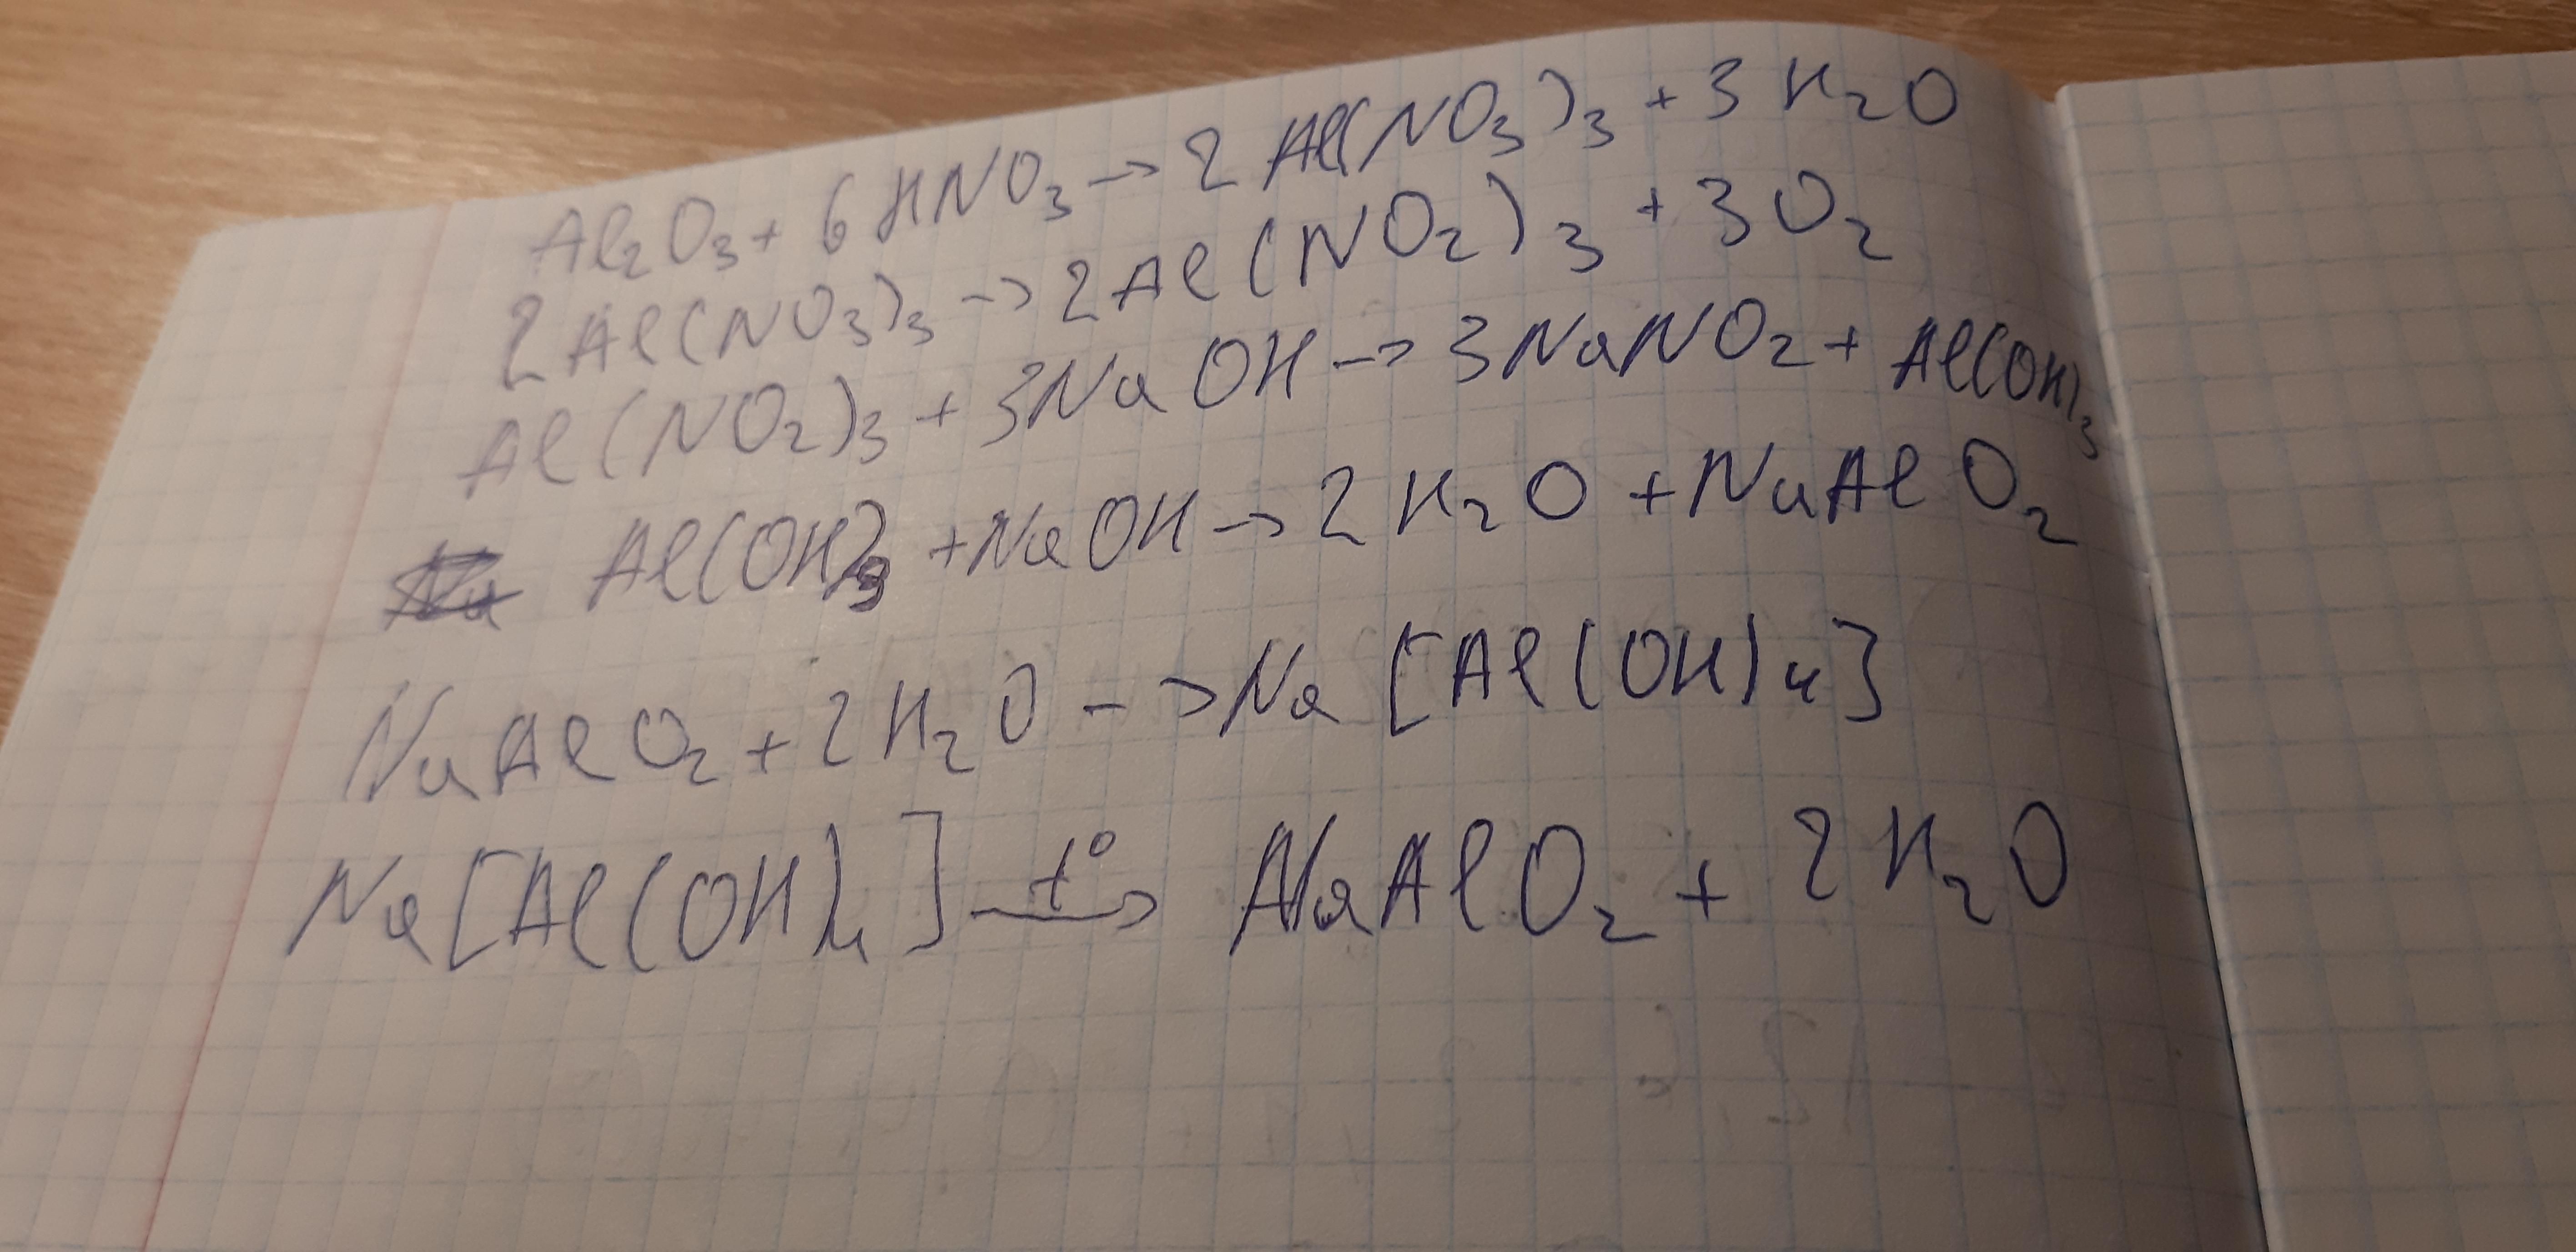 Al₂O₃ + 6HNO₃ → 2Al(NO₃)₃ + 3H₂O
2Al(NO₃)₃ → 2Al(NO₂)₃ + 3O₂
Al(NO₂)₃ + 3NaOH → 3NaNO₂ + Al(OH)₃
Al(OH)₃ + NaOH → 2H₂O + NaAlO₂
NaAlO₂ + 2H₂O → Na[Al(OH)₄]
Na[Al(OH)₄] t°→ NaAlO₂ + 2H₂O